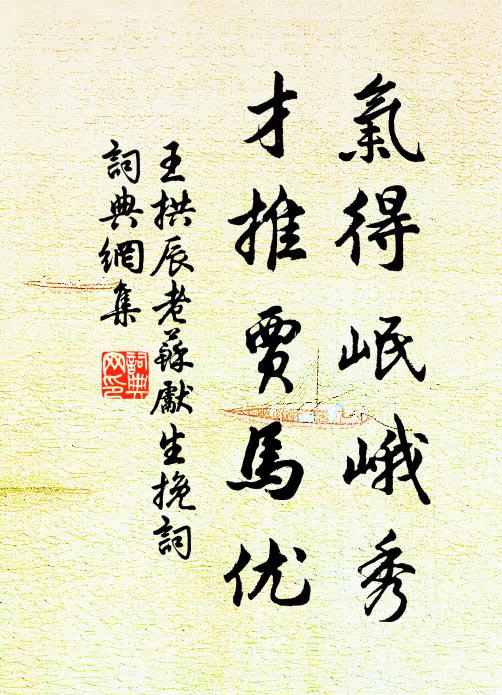 氣得岷峨秀
才推賈馬优
王拱辰老蘇獻生挽詞
詞典網集
詞典网印